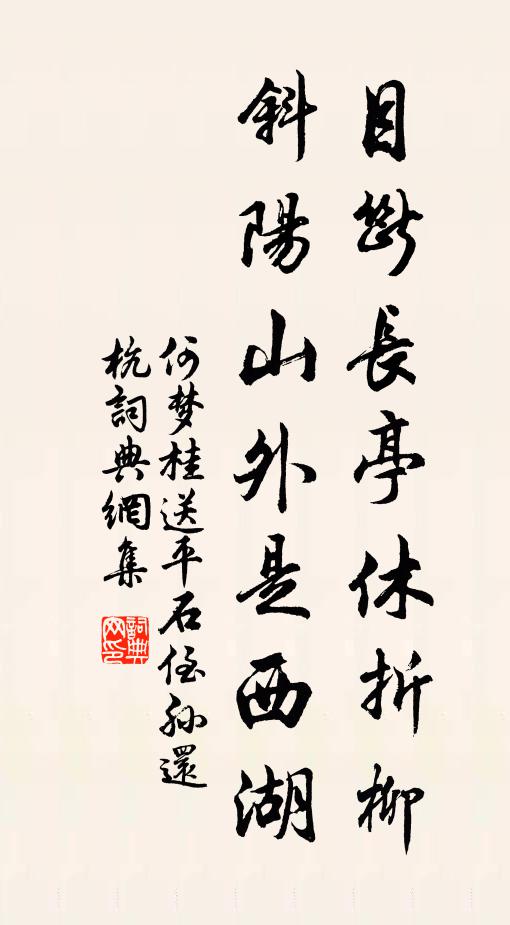 目斷長亭休折柳
斜陽山外是西湖
何梦桂送平石侄孙還
杭詞典網集
詞典
网印